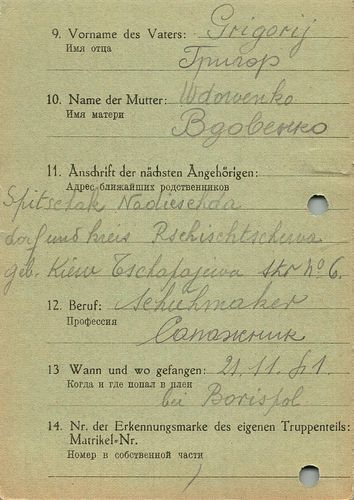 9. Vorname des Vaters: Grigorij
Имя отца
Григор
10. Name der Mutter: Wdowenko
Имя матери
Вдовенко
11. Anschrift der nächsten Angehörigen:
Адрес ближайших родственников
Spitschak Nadieschda
dorf und kreis Rschischtschewa
geb. Kiew Tschapajewa str No 6.
12. Beruf: Schuhmaker
Профессия
Сапажник
13 Wann und wo gefangen: 21. 11. 41.
Когда и где попал в плен
bei Borispol
14. Nr. der Erkennungsmarke des eigenen Truppenteils:
Matrikel-Nr.
Номер в собственной части